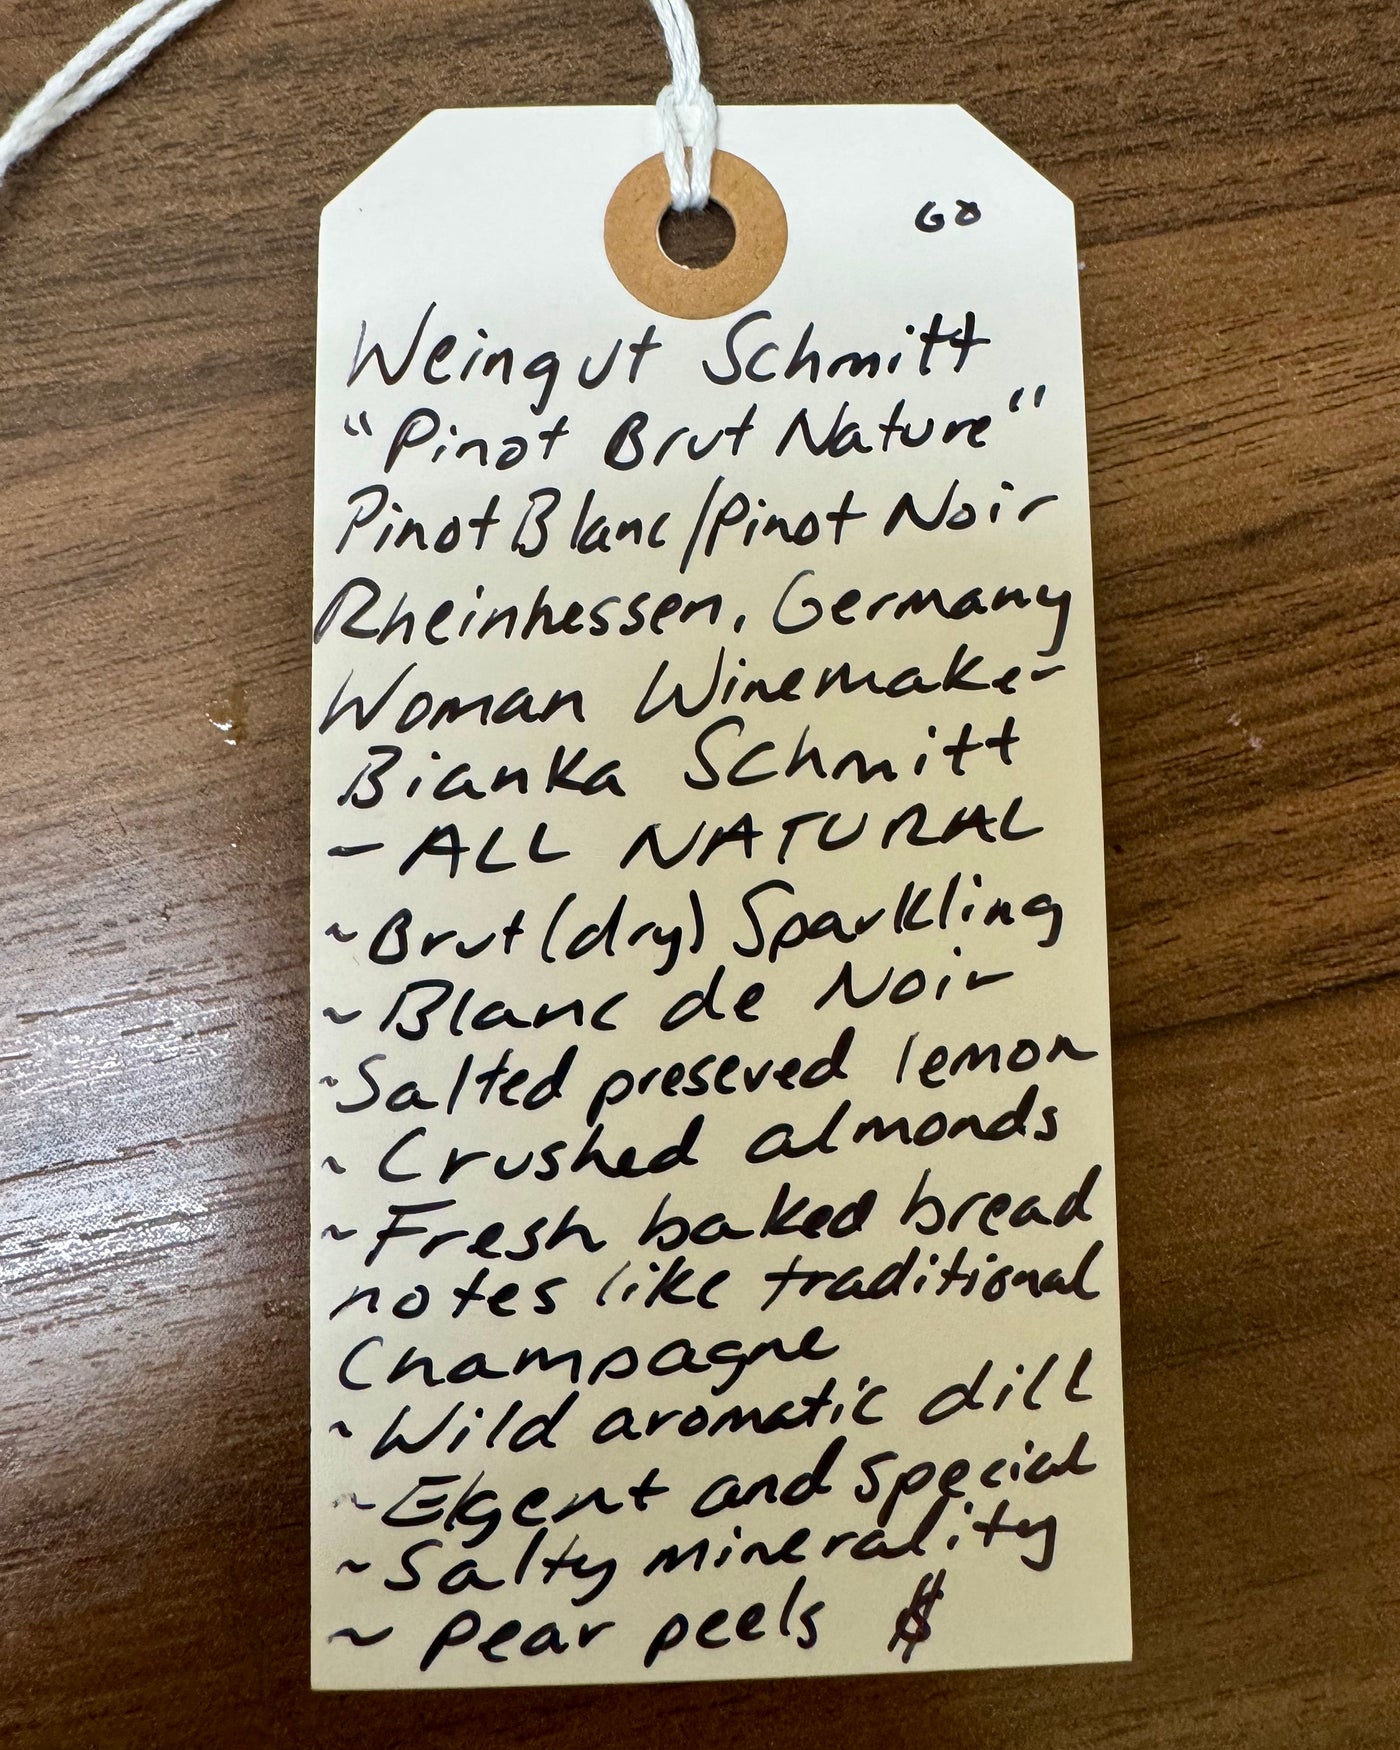 GO
Weingut Schmitt
"Pinot Brut Nature"
Pinot Blanc/Pinot Noir
Rheinhessen, Germany
Woman Winemaker
Bianka Schmitt
- ALL NATURAL
~ Brut (dry) Sparkling
~ Blanc de Noir
~ Salted preseved lemon
~ Crushed almonds
~ Fresh baked bread
notes like traditional
Champagne
~ Wild aromatic dill
~ Elgent and special
~ Salty minerality
~ Pear peels $